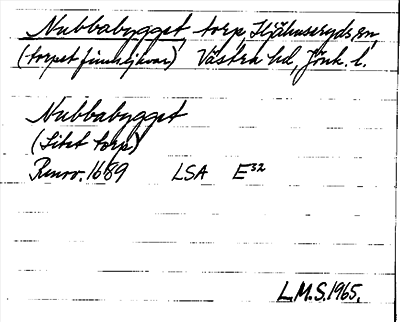 Nubbabygget, torp, Hjälmseryds sn,
(torpet finns kvar) Västra hd, Jönk. l.
Nubbabygget
(Litet torp)
Renov. 1689 LSA E32
L.M.S. 1965.